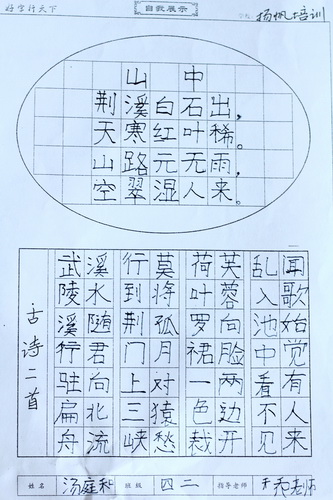 好字行天下
展示
扬帆培训
山中
荆溪白石出,
天寒红叶稀。
山路元无雨,
空翠湿人来。
古诗二首
武陵溪行驻扁舟
溪水随君向北流
行到荆门上三峡
莫将孤月对猿愁
荷叶罗裙一色裁
芙蓉向脸两边开
乱入池中看不见
闻歌始觉有人来
姓名 汤庭和 班级 四二 指导老师 老师